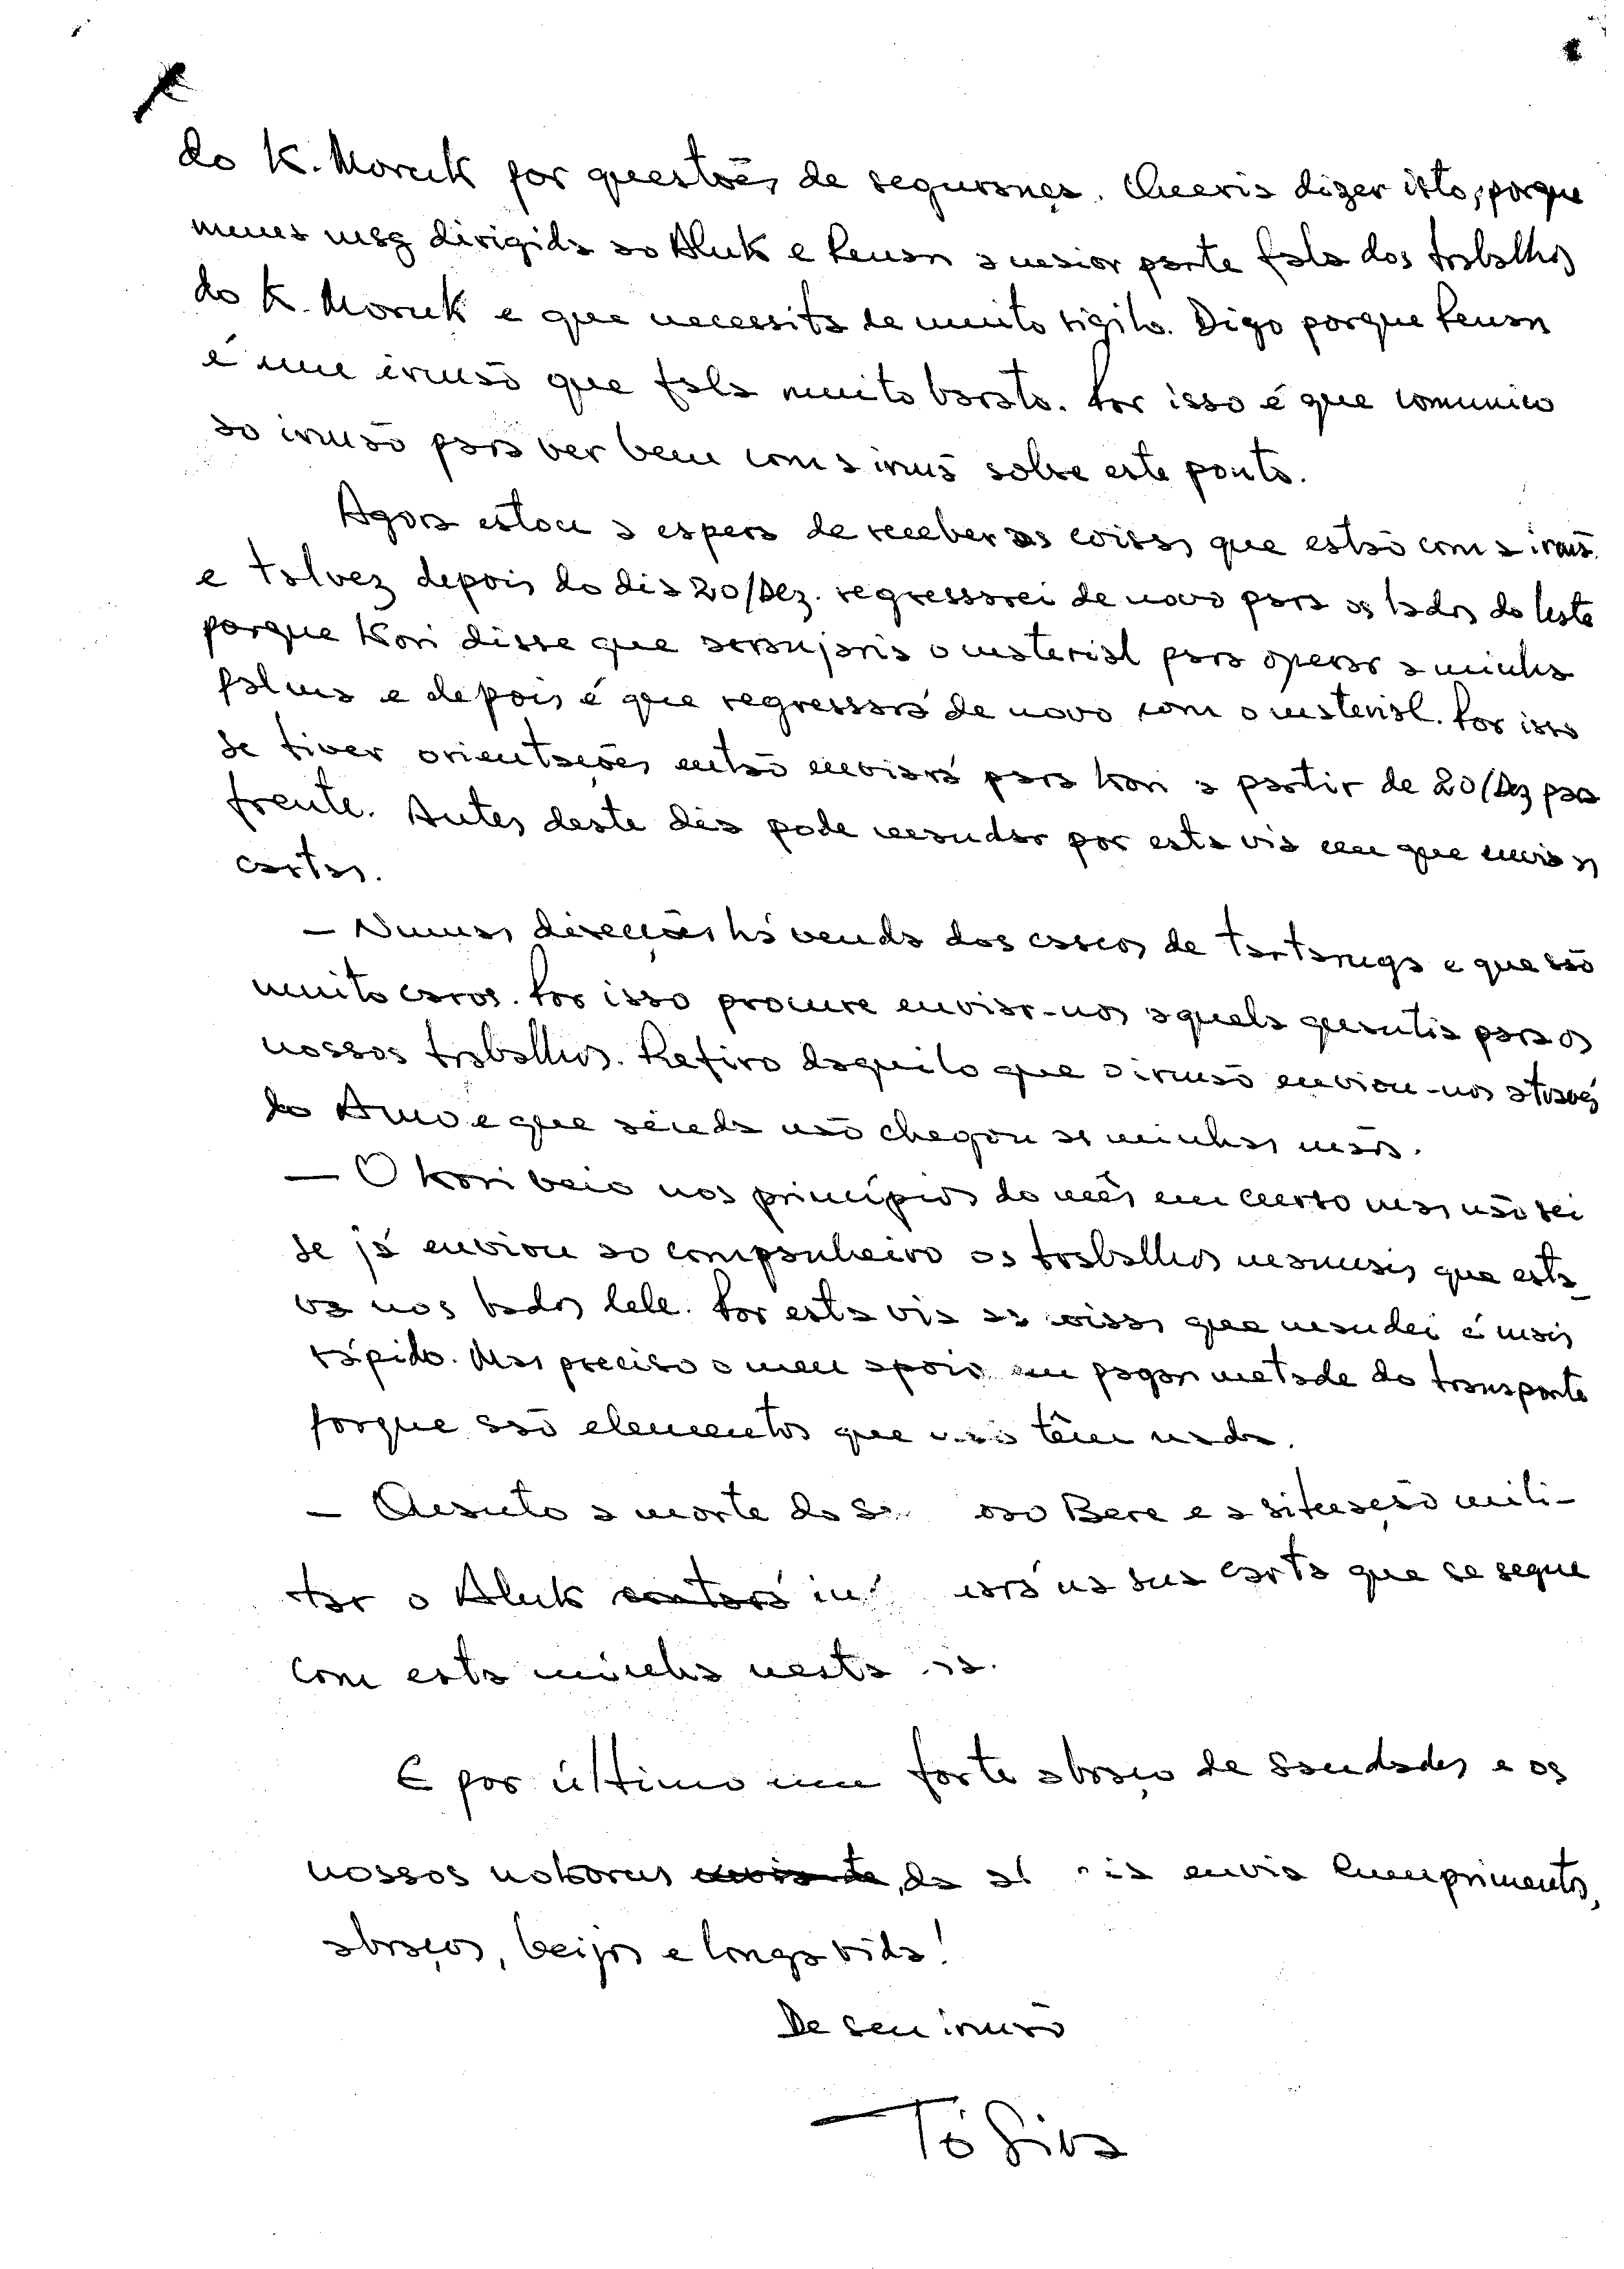 do K. Moruk por questões de segurança. Queria dizer isto, porque
numa msg dirigida ao Aluk e Renan a maior parte fala dos trabalhos
do K. Moruk e que necessita de muito sigilo. Digo porque Renan
é um irmão que fala muito barato. Por isso é que comunico
ao irmão para ver bem com a irmã sobre este ponto.
Agora estou a espera de receber as coisas que estão com a irmã
e talvez depois do dia 20/Dez. regressarei de novo para os lados do leste
porque Kori disse que arranjaria o material para operar a minha
palma e depois é que regressará de novo com o material. Por isso
se tiver orientações então enviará para Kori a partir de 20/Dez para
frente. Antes deste dia pode mandar por esta via em que envia as
cartas.
– Numas direcções há venda dos cascos de tartaruga e que são
muito caros. Por isso procure enviar-nos aquela quantia para os
nossos trabalhos. Refiro daquilo que o irmão enviou-nos através
do Amo e que ainda não chegou as minhas mãos.
– O Kori veio nos princípios do mês em curso mas não sei
se já enviou ao companheiro os trabalhos manuais que esta_
va nos lados dele. Por esta via as coisas que mandei é mais
rápido. Mas preciso o meu apoio em pagar metade do transporte
porque são elementos que não têm nada.
– Quanto a morte do Sa oso Bere e a situação mili-
tar o Aluk contará in ará na sua carta que se segue
com esta minha nesta ia.
E por último um forte abraço de saudades e os
nossos nokorus da al ia envia cumprimentos,
abraços, beijos e longa vida!
De seu irmão
Tó Siva